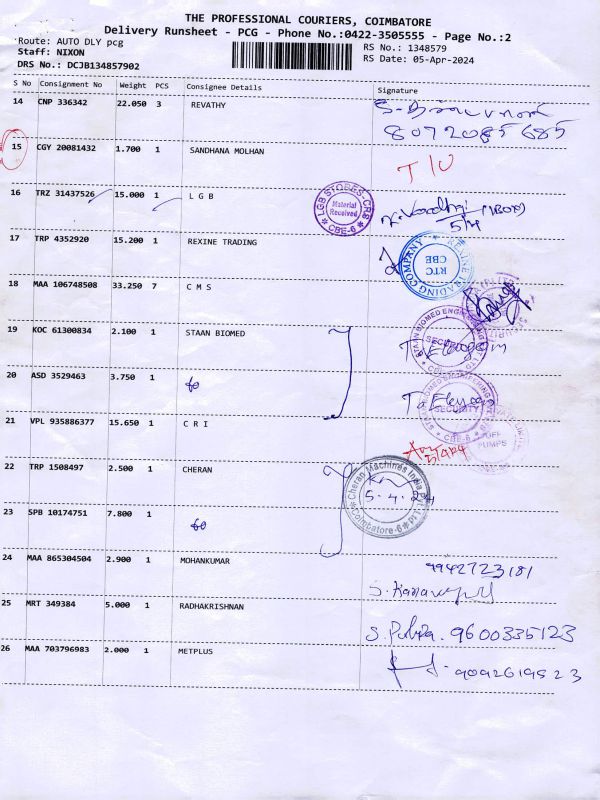 THE PROFESSIONAL COURIERS, COIMBATORE
Delivery Runsheet - PCG - Phone No.:0422-3505555 - Page No.:2
Route: AUTO DLY pcg
RS No.: 1348579
Staff: NIXON
RS Date: 05-Apr-2024
DRS No.: DCJB134857902
S No Consignment No Weight PCS Consignee Details Signature
14 CNP 336342 22.050 3 REVATHY
8072085685
15 CGY 20081432 1.700 1 SANDHANA MOLHAN T/U
16 TRZ 31437526 15.000 1 L G B
LGB STORES-CRS Material Received CBE-6
5/4
17 TRP 4352920 15.200 1 REXINE TRADING
REXINE TRADING COMPANY RTC CBE
18 MAA 106748508 33.250 7 C M S
19 KOC 61300834 2.100 1 STAAN BIOMED
STAAN BIOMED ENGINEERING SECURITY
20 ASD 3529463 3.750 1 do
STAAN BIOMED ENGINEERING SECURITY CBE-6
21 VPL 935886377 15.650 1 C R I
PUMPS
22 TRP 1508497 2.500 1 CHERAN
Cheran Machines India Coimbatore-6
5.4.24
23 SPB 10174751 7.800 1 do
24 MAA 865304504 2.900 1 MOHANKUMAR
9942723181
25 MRT 349384 5.000 1 RADHAKRISHNAN
9600335123
26 MAA 703796983 2.000 1 METPLUS
9092619523